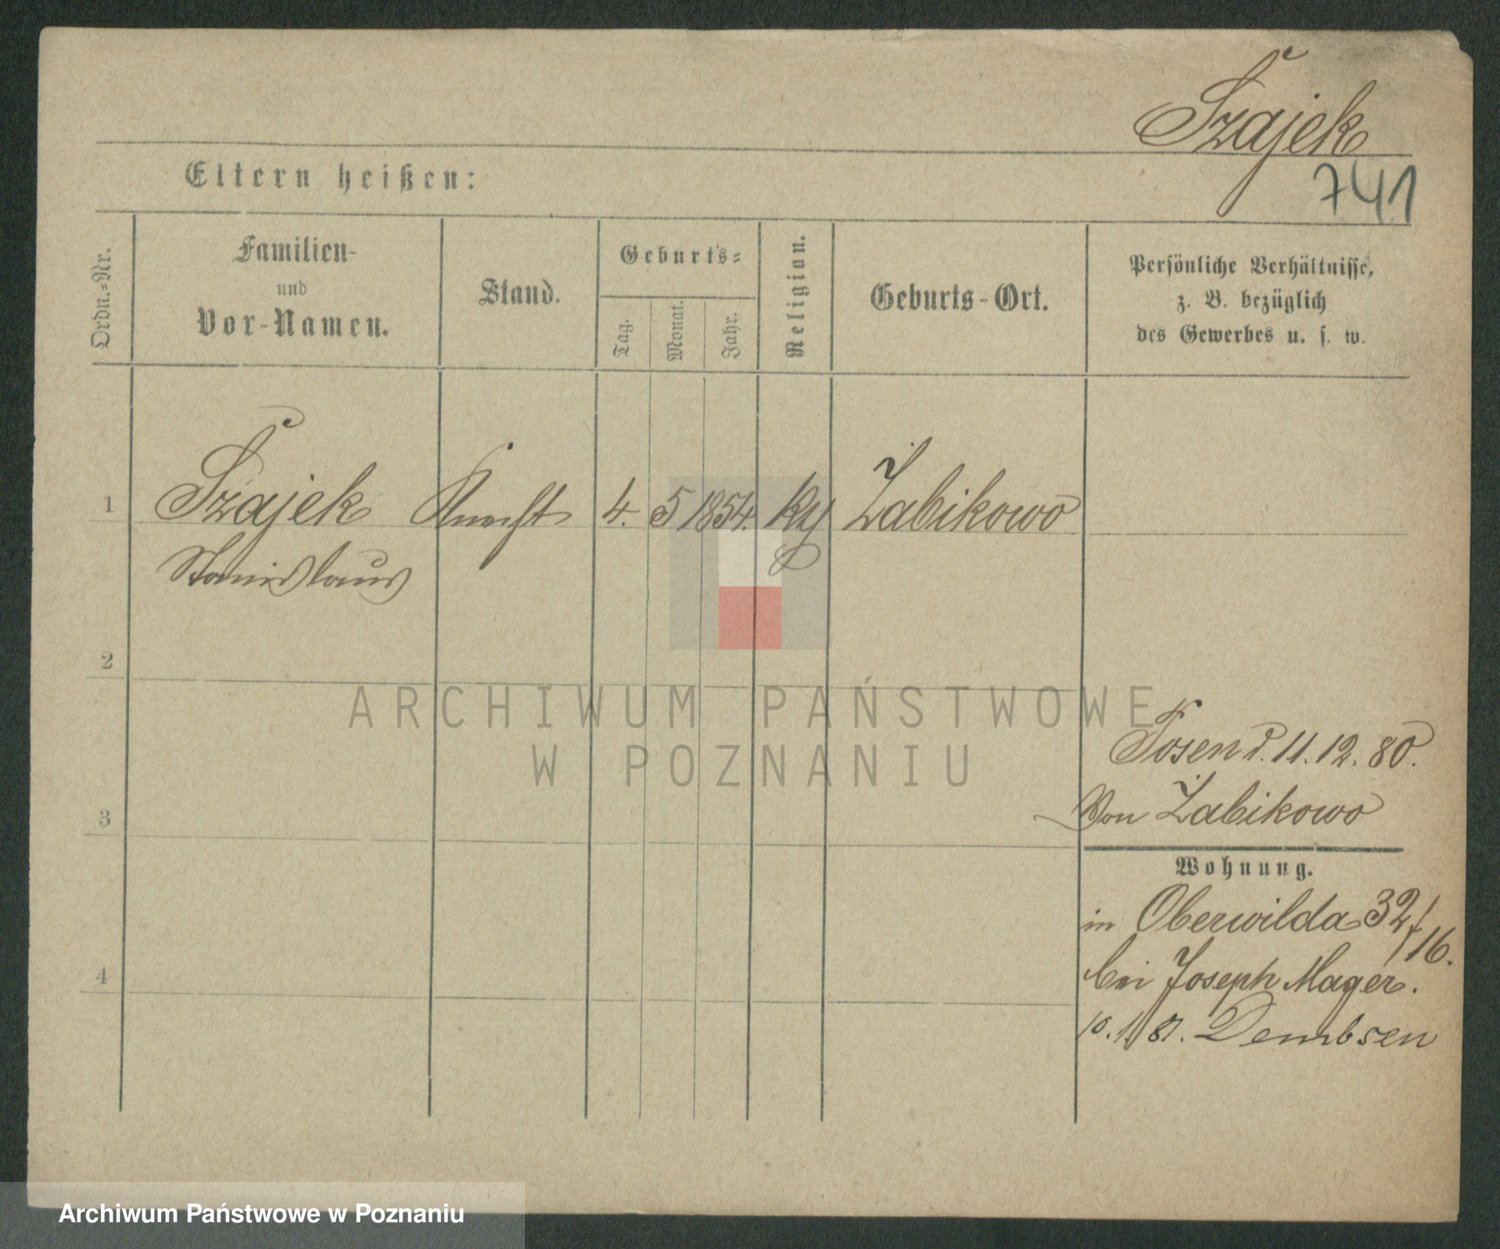 Szajek
741
Eltern heißen:
Ordn.-Nr.
Familien-
und
Vor-Namen.
Stand.
Geburts-
Tag.
Monat.
Jahr.
Religion.
Geburts-Ort.
Persönliche Verhältnisse,
z. B. bezüglich
des Gewerbes u. s. w.
1 Szajek Knecht 4. 5 1854. Żabikowo
Stanislaus
2
ARCHIWUM PAŃSTWOWE
W POZNANIU
Posen d. 11. 12. 80.
Von Żabikowo
3
Wohnung.
in Oberwilda 32/16.
bei Joseph Mager.
4
10. 1. 81. Dembsen
Archiwum Państwowe w Poznaniu